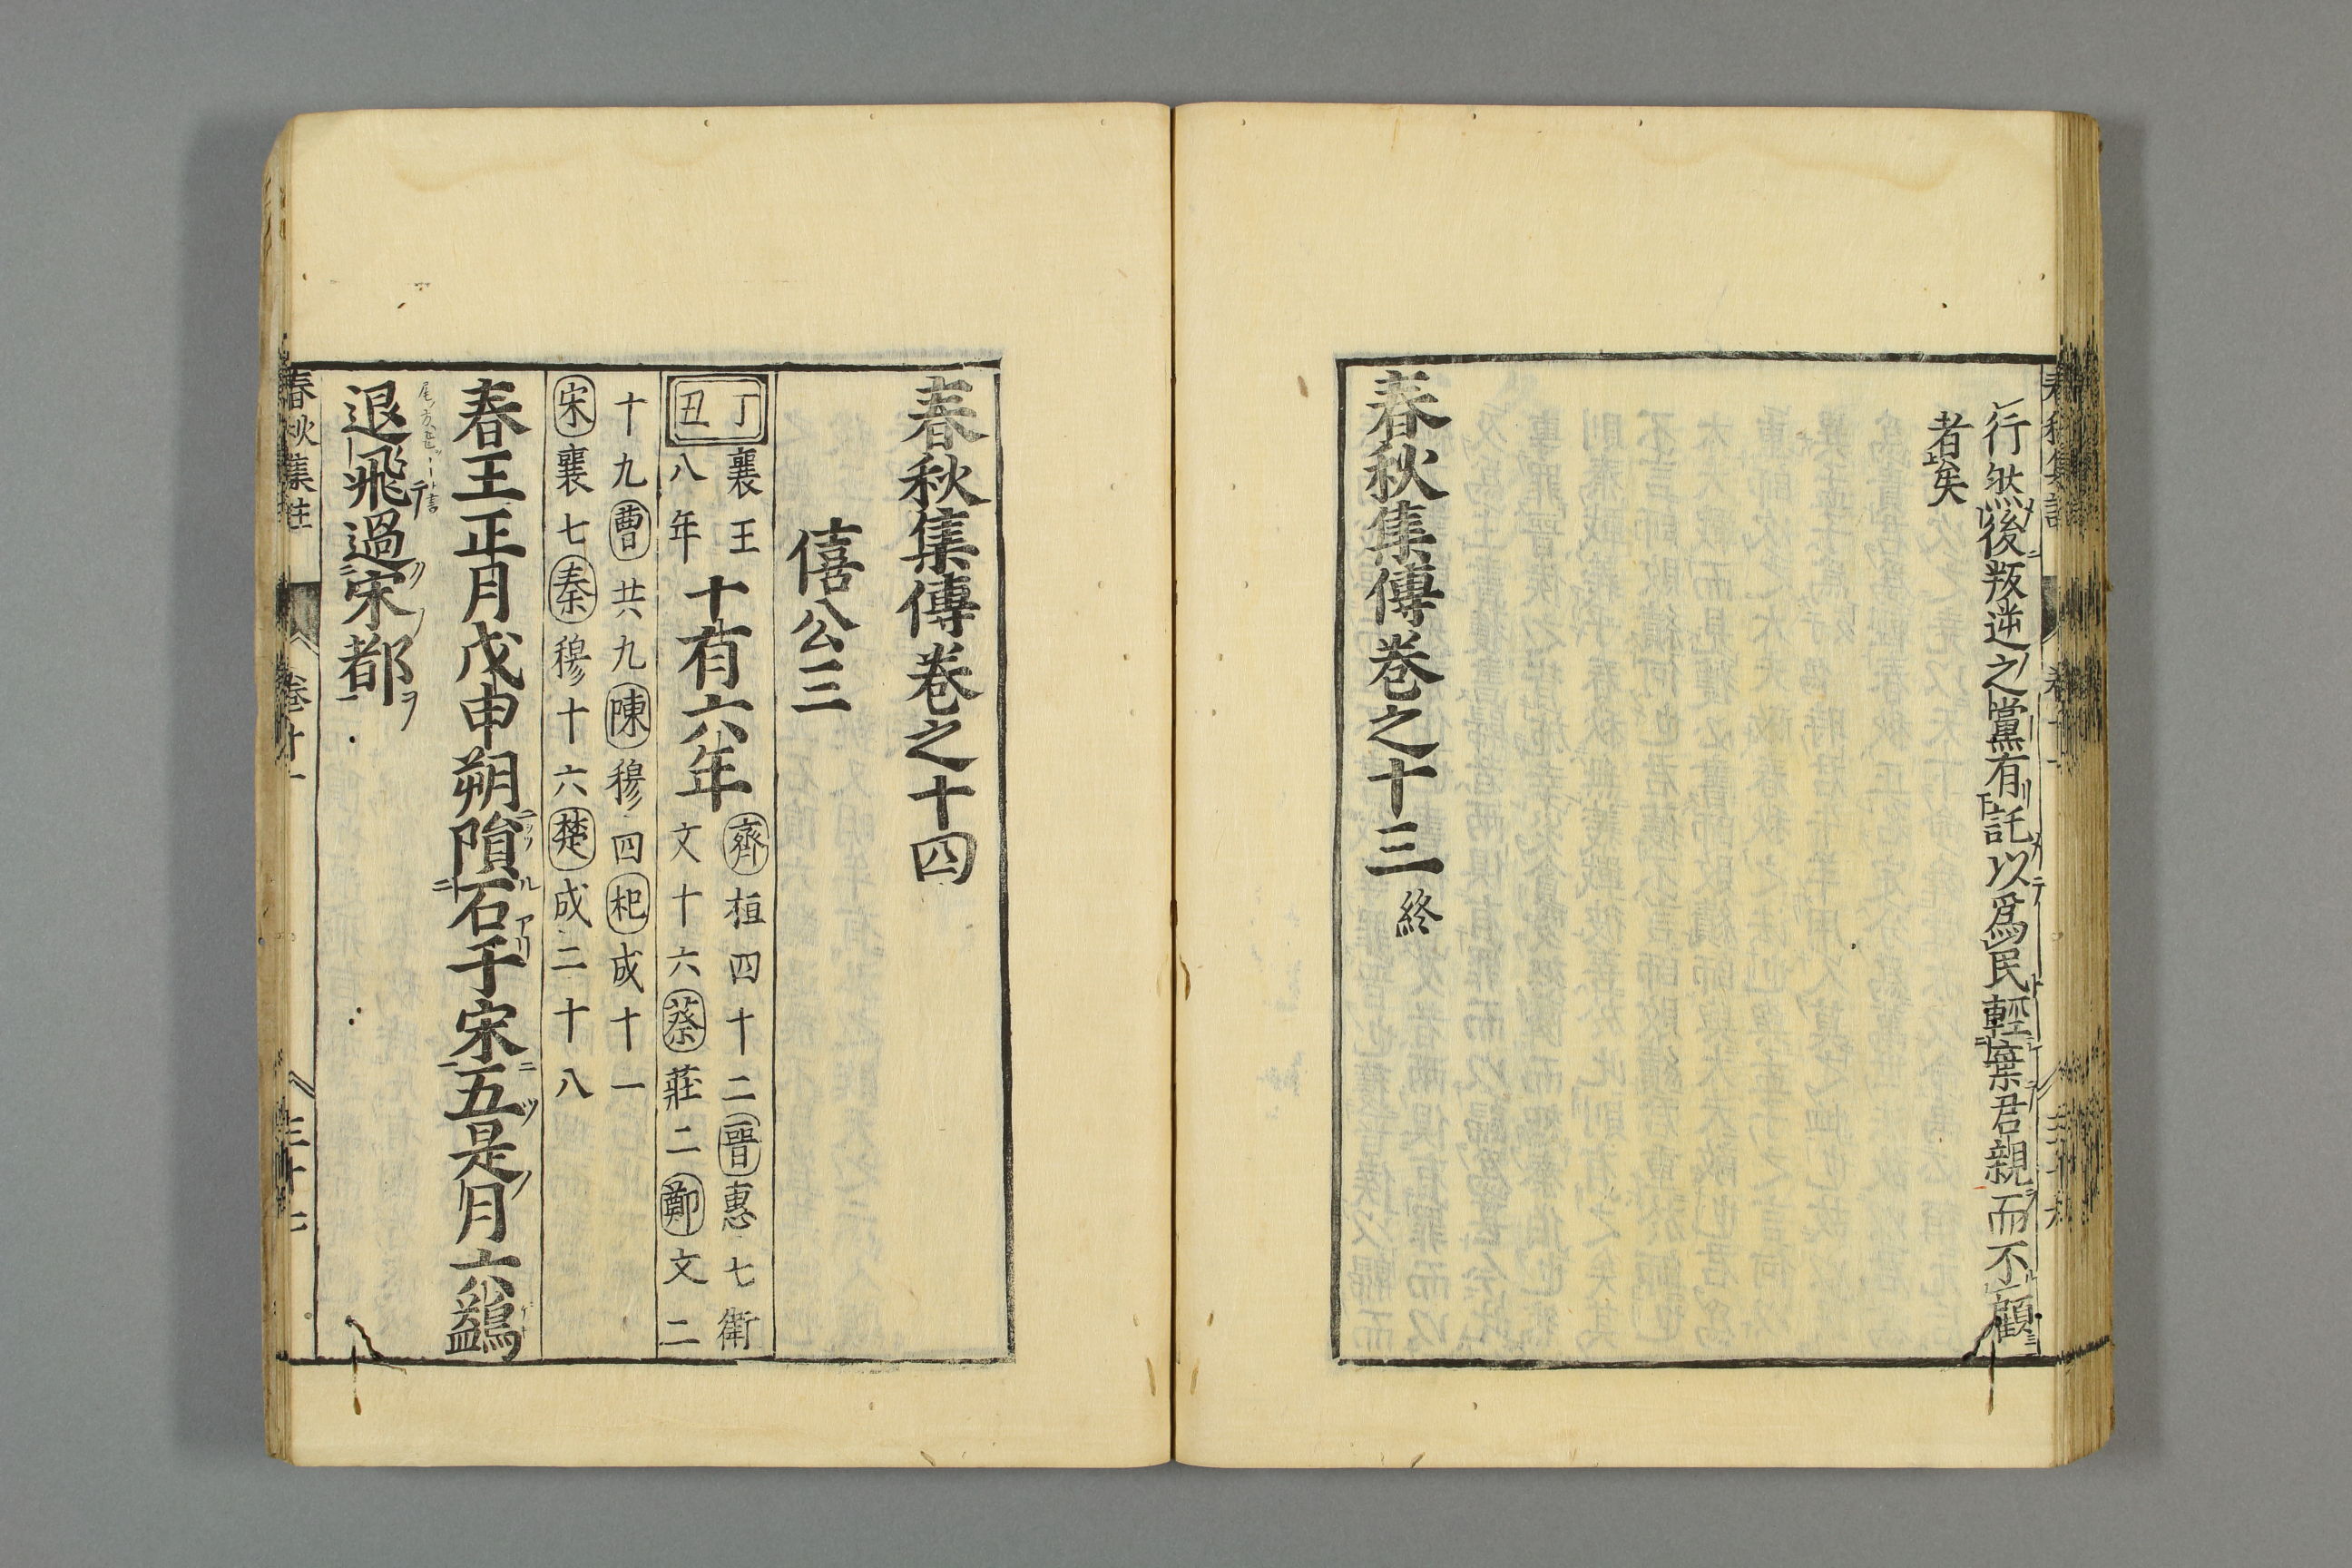 行然後叛逆之黨有託以爲民輕棄君親而不顧
者矣
春秋集傳巻之十三 終
春秋集傳巻之十四
僖公三
丁丑 襄王八年 十有六年 齊桓四十二晉惠七衛文十六蔡莊二鄭文二
十九曹共九陳穆四杞成十一
宋襄七秦穆十六楚成二十八
春王正月戊申朔隕石于宋五是月六鷁
退飛過宋都
春秋集註 三十七